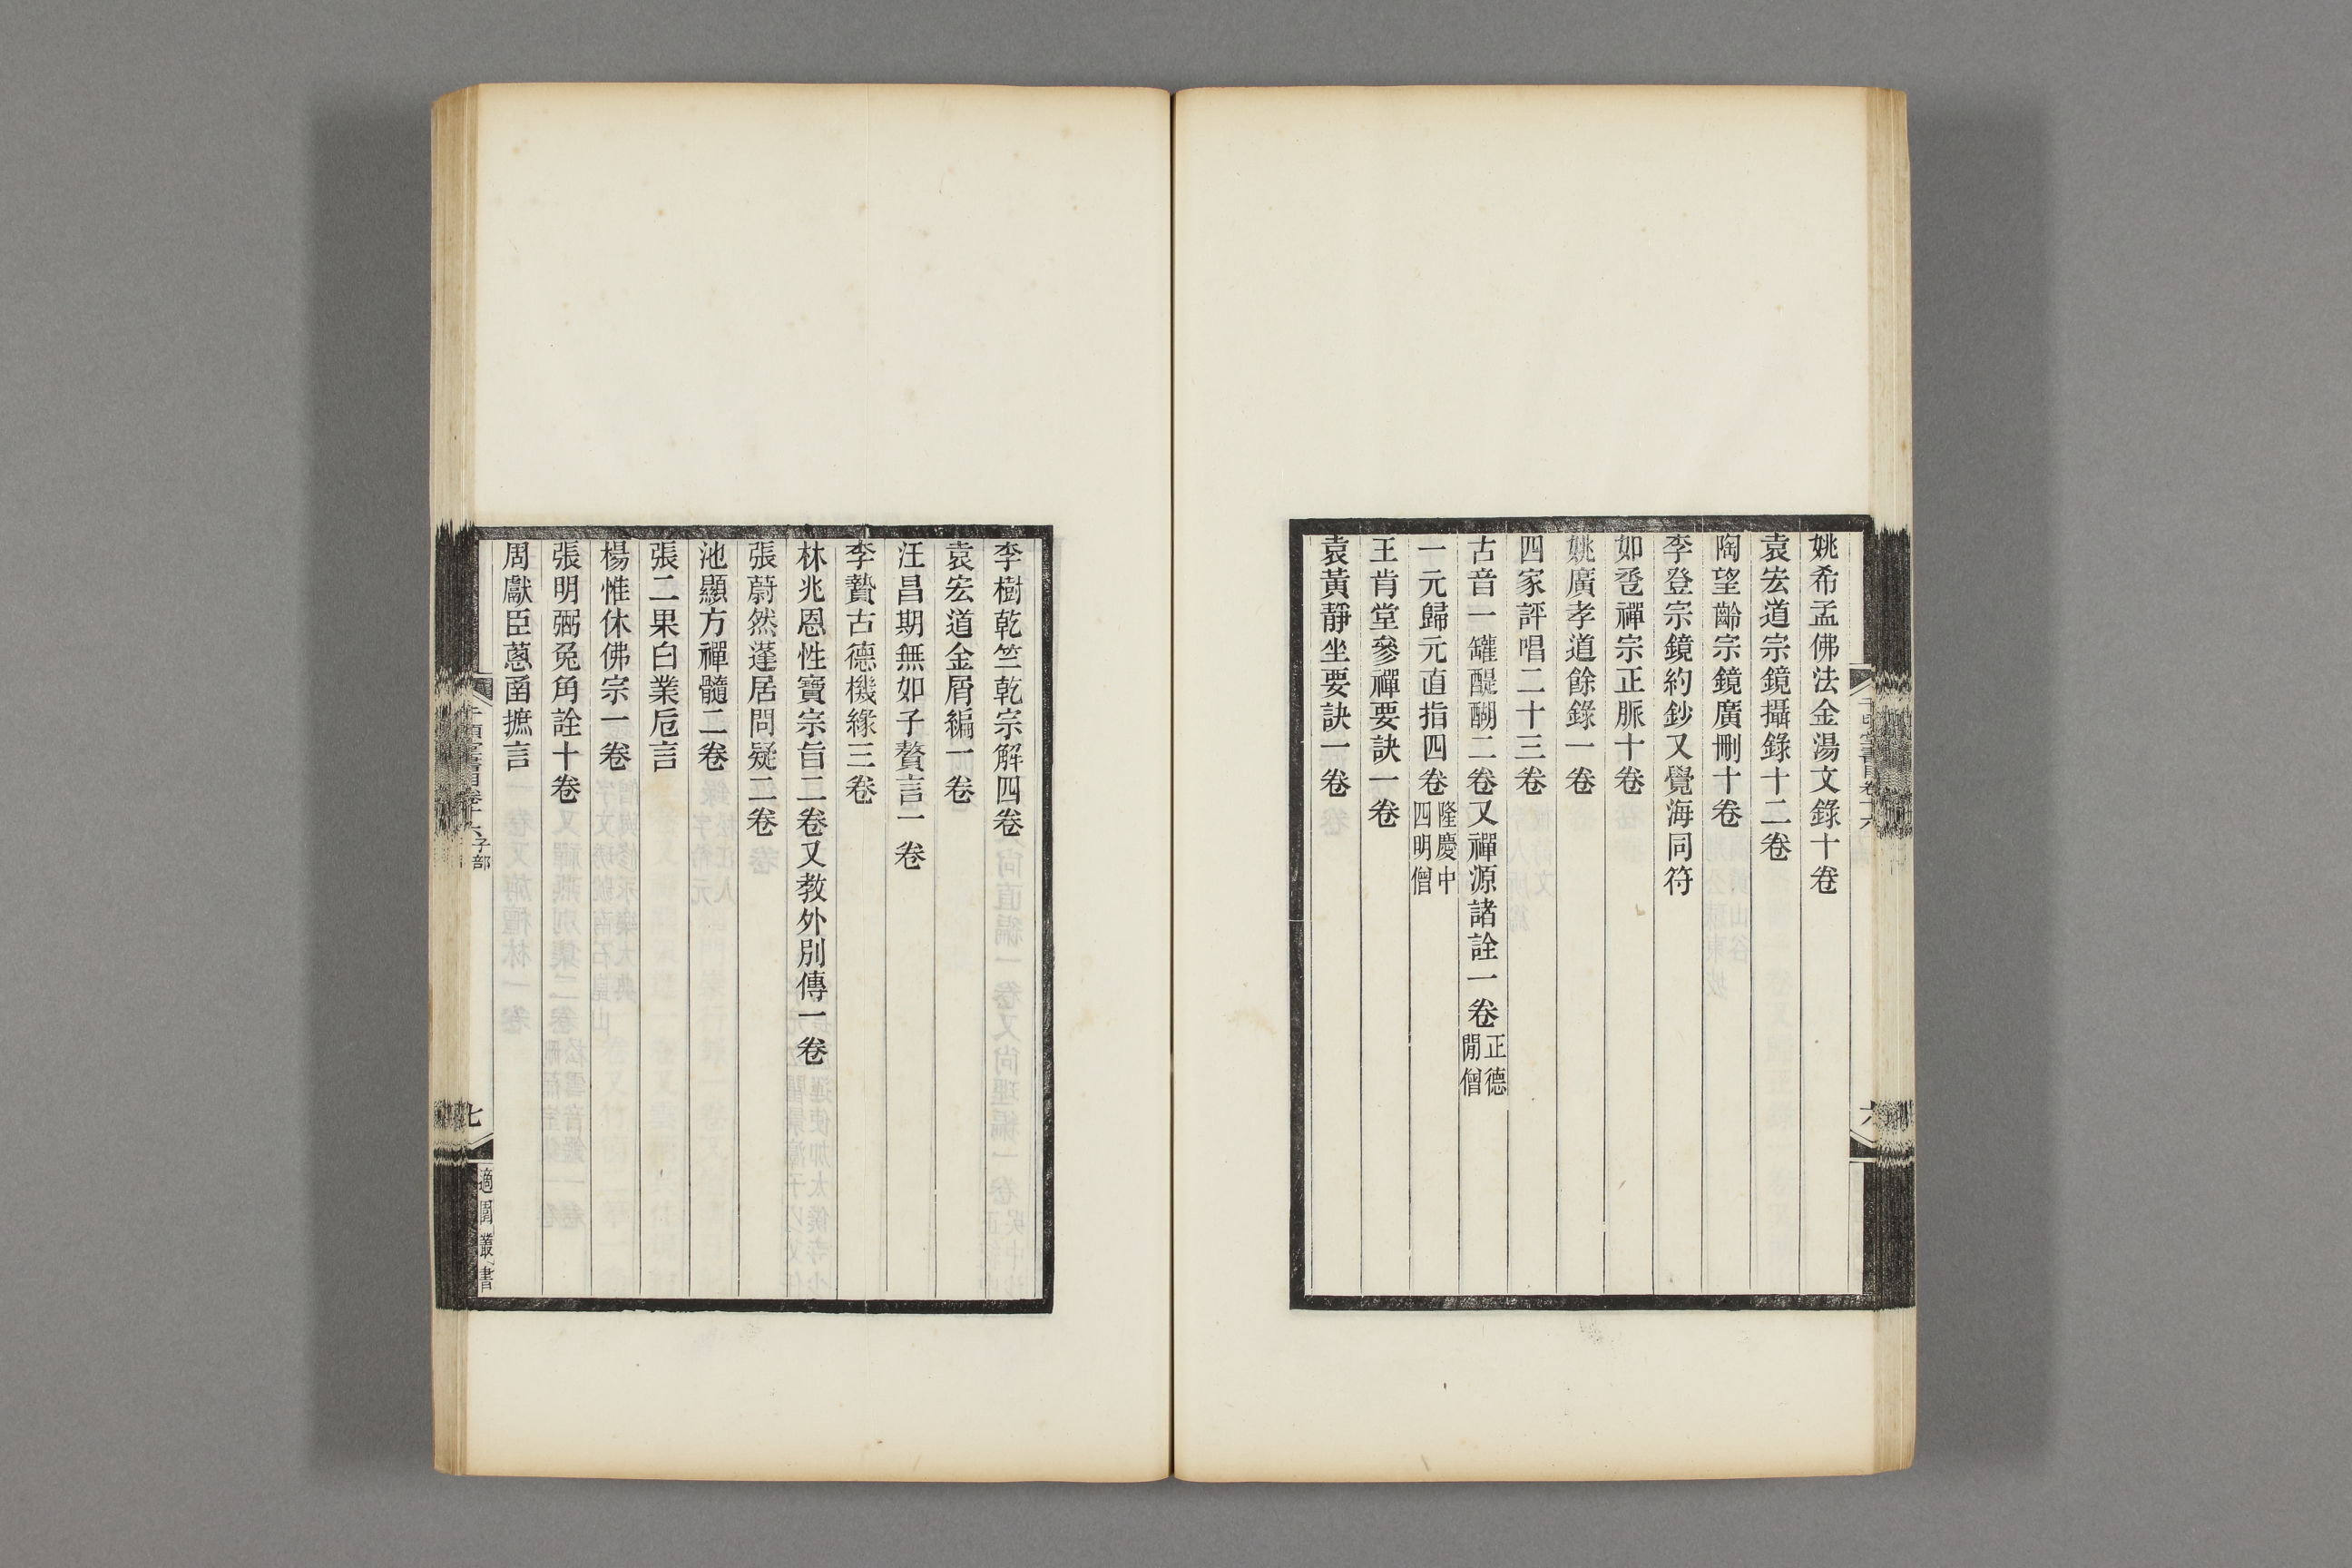 姚希孟佛法金湯文錄十卷
袁宏道宗鏡攝錄十二卷
陶望齡宗鏡廣刪十卷
李登宗鏡約鈔又覺海同符
如巹禪宗正脈十卷
姚廣孝道餘錄一卷
四家評唱二十三卷
古音一罐醍醐二卷又禪源諸詮一卷正德閒僧
一元歸元直指四卷隆慶中四明僧
王肯堂參禪要訣一卷
袁黃靜坐要訣一卷
李樹乾竺乾宗解四卷
袁宏道金屑編一卷
汪昌期無如子贅言一卷
李贄古德機緣三卷
林兆恩性寶宗旨二卷又教外別傳一卷
張蔚然蓬居問疑二卷
池顯方禪髓二卷
張二果白業卮言
楊惟休佛宗一卷
張明弼兔角詮十卷
周獻臣蔥函摭言
書目卷十六 子部
七
適園叢書